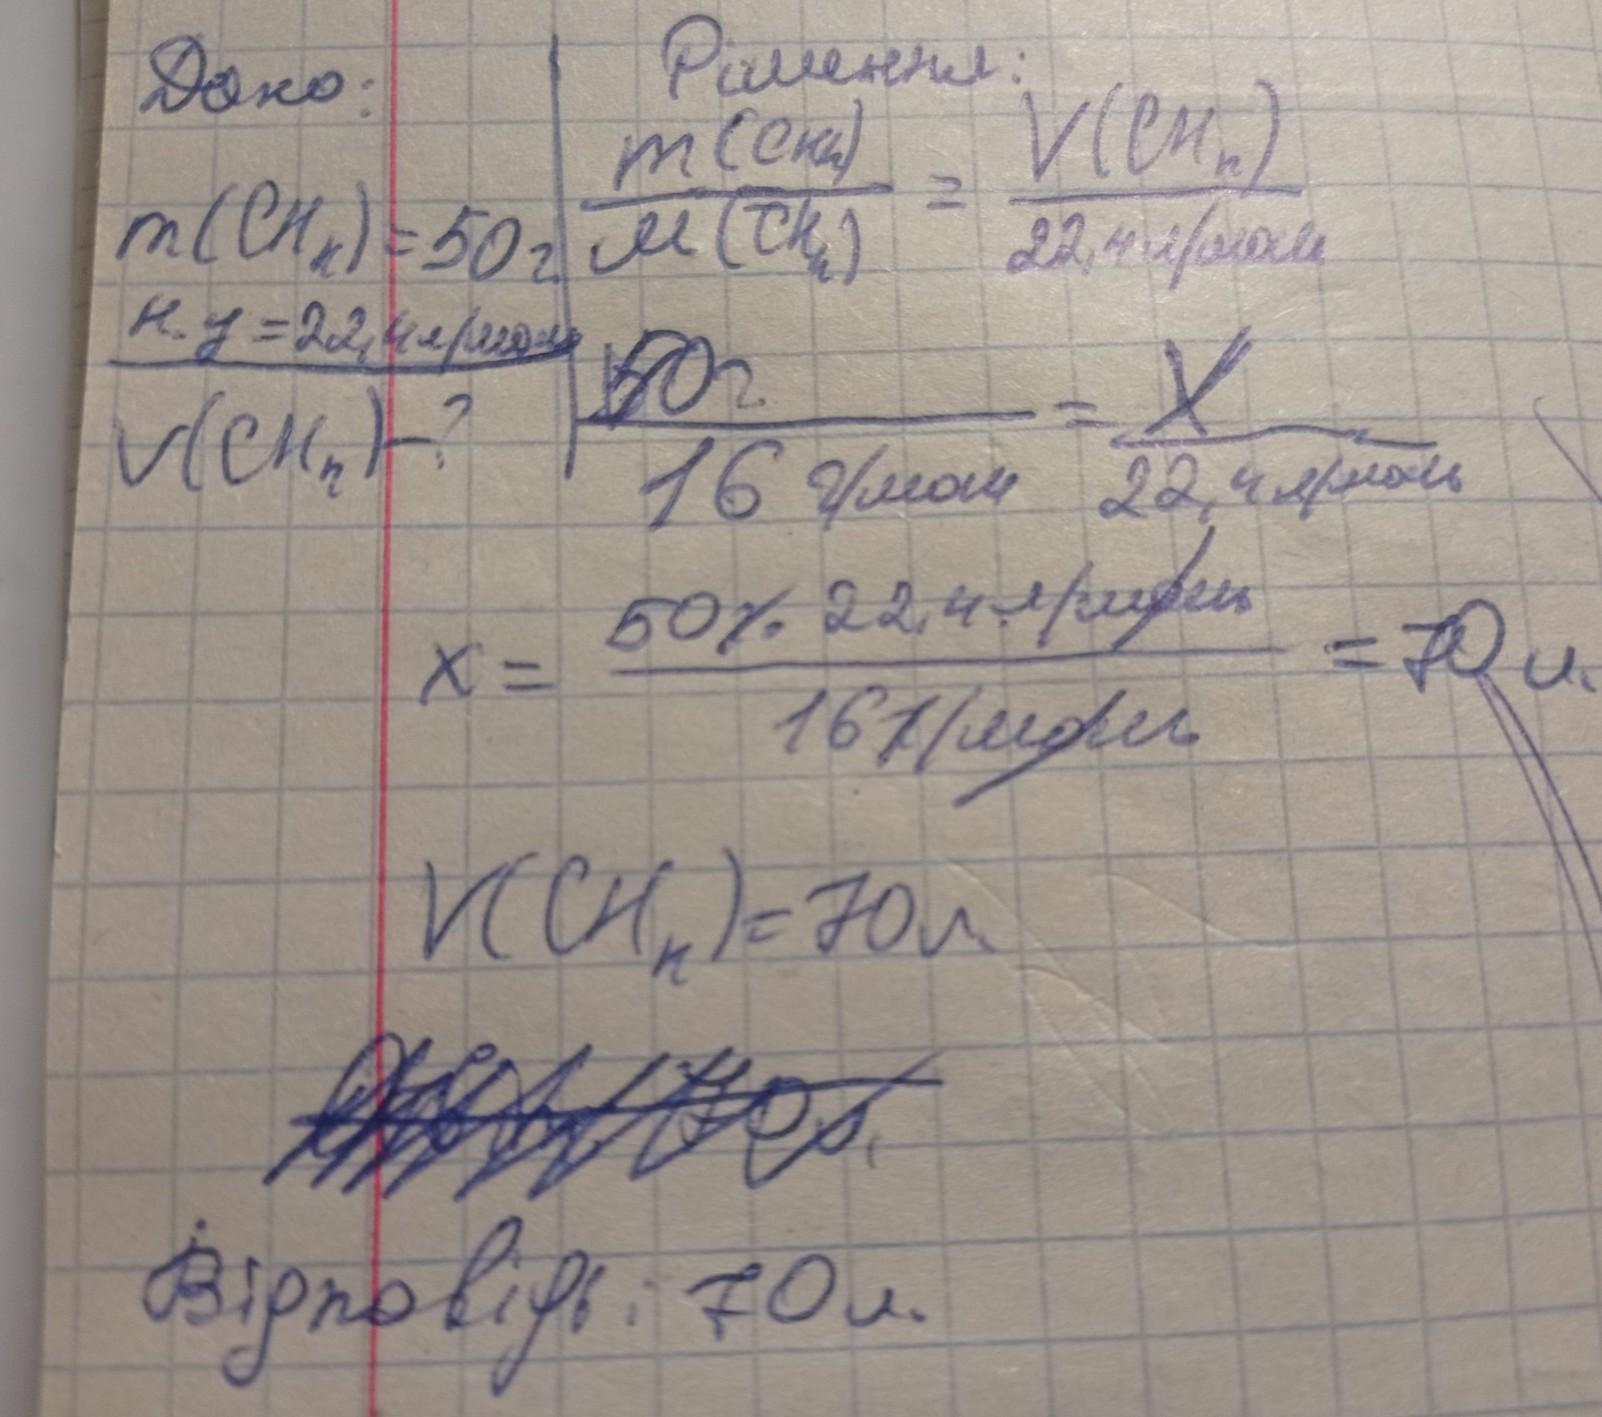 Дано:
m(CH₄) = 50г
н.у = 22,4л/моль
V(CH₄) - ?
Рішення:
m(CH₄) / M(CH₄) = V(CH₄) / 22,4л/моль
50г / 16 г/моль = X / 22,4л/моль
x = 50г · 22,4 л/моль / 16г/моль = 70 л.
V(CH₄) = 70л
70л.
Відповідь: 70л.